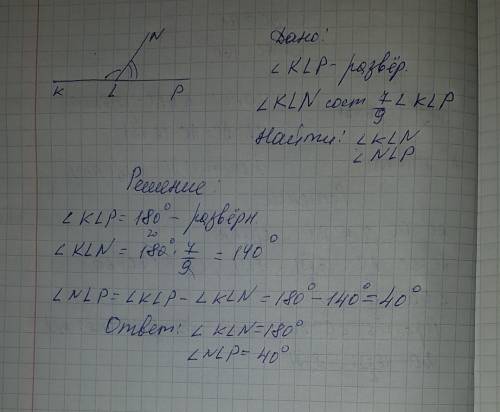 N
K L P
Дано:
∠KLP - развёр.
∠KLN сост 7/9 ∠KLP
Найти: ∠KLN
∠NLP
Решение:
∠KLP = 180° - развёрн
20
∠KLN = 180° · 7/9 = 140°
∠NLP = ∠KLP - ∠KLN = 180° - 140° = 40°
Ответ: ∠KLN = 180°
∠NLP = 40°